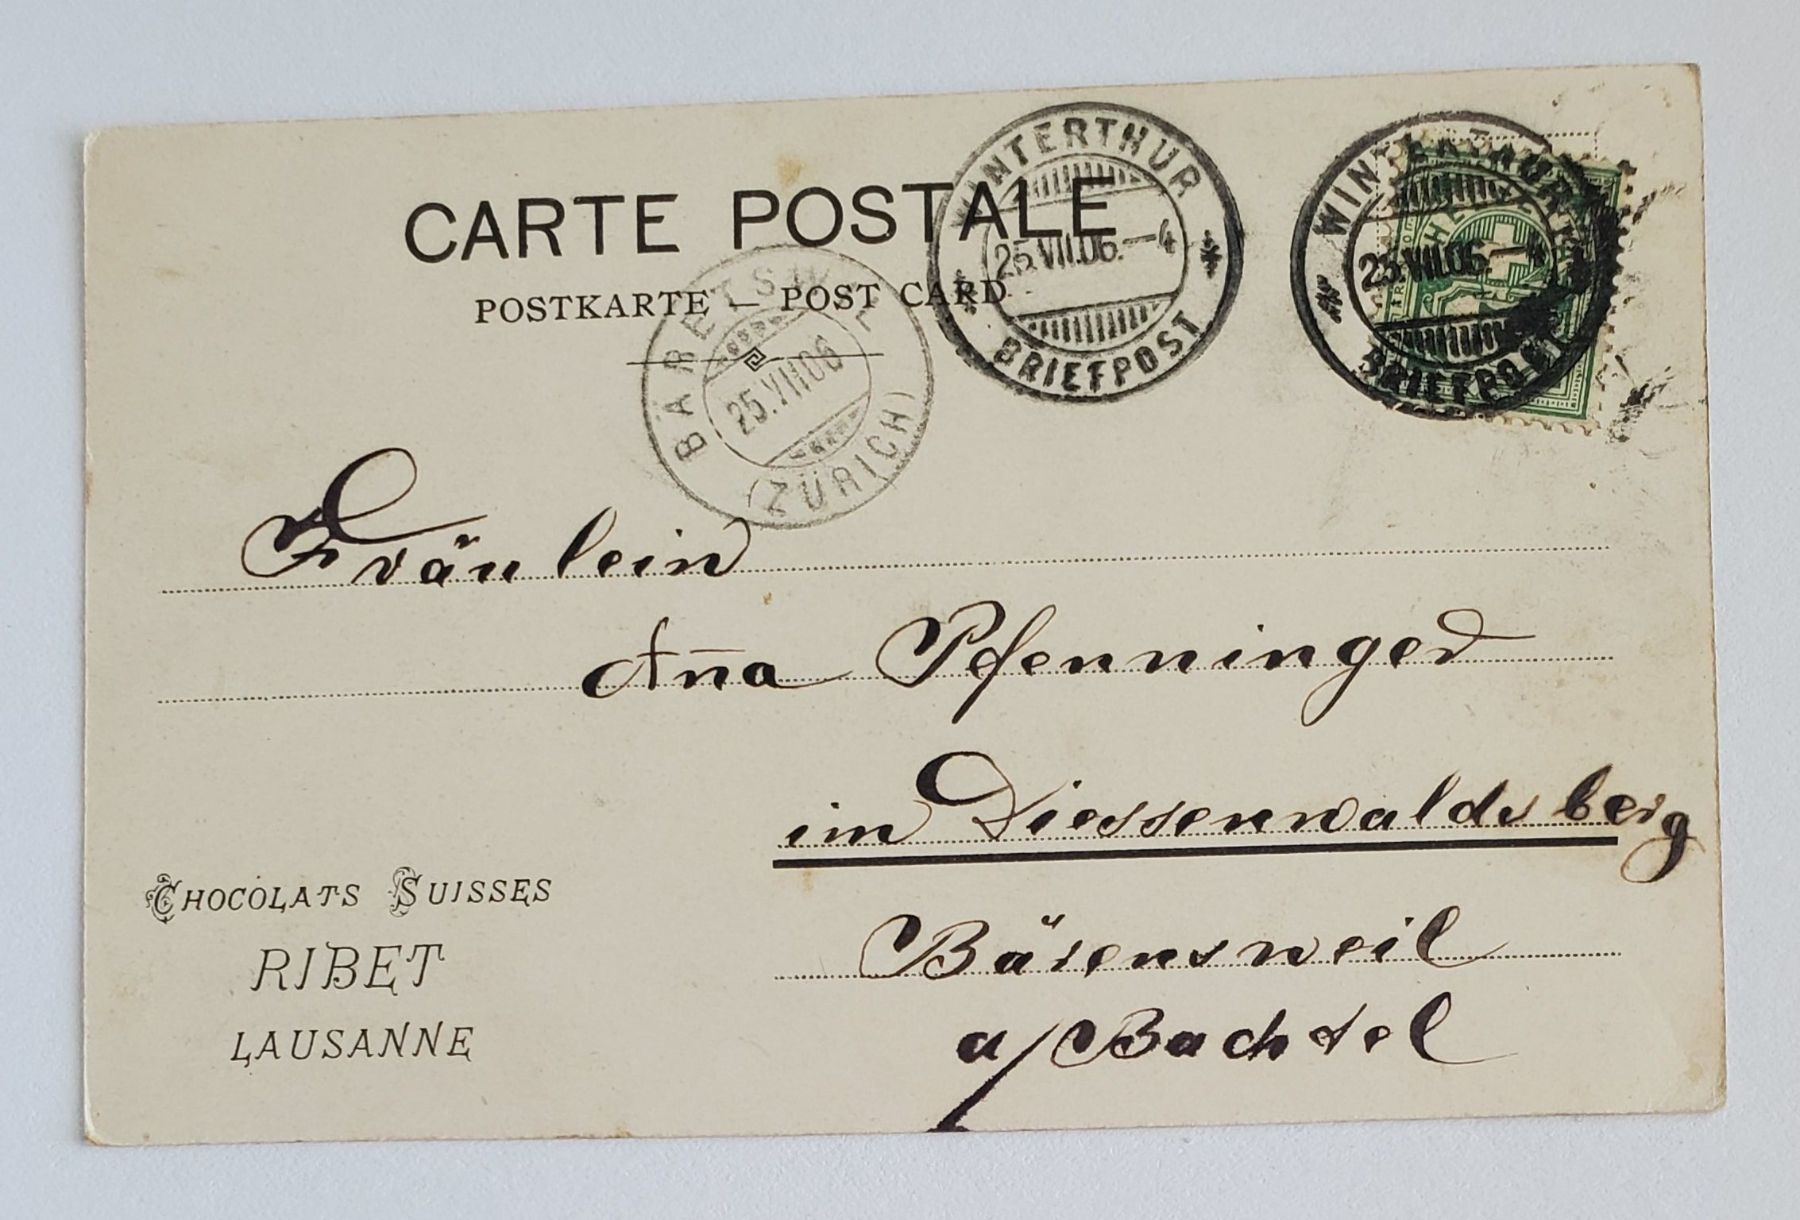 CARTE POSTALE
POSTKARTE — POST CARD
WINTERTHUR
25.VII.06.—4
BRIEFPOST
WINTERTHUR
25.VII.06.—4
BRIEFPOST
BÄRETSWIL
25.VII.06
(ZÜRICH)
Fräulein
Añna Pfenninger
im Diessenwaldsberg
Bärensweil
a/Bachtel
CHOCOLATS SUISSES
RIBET
LAUSANNE